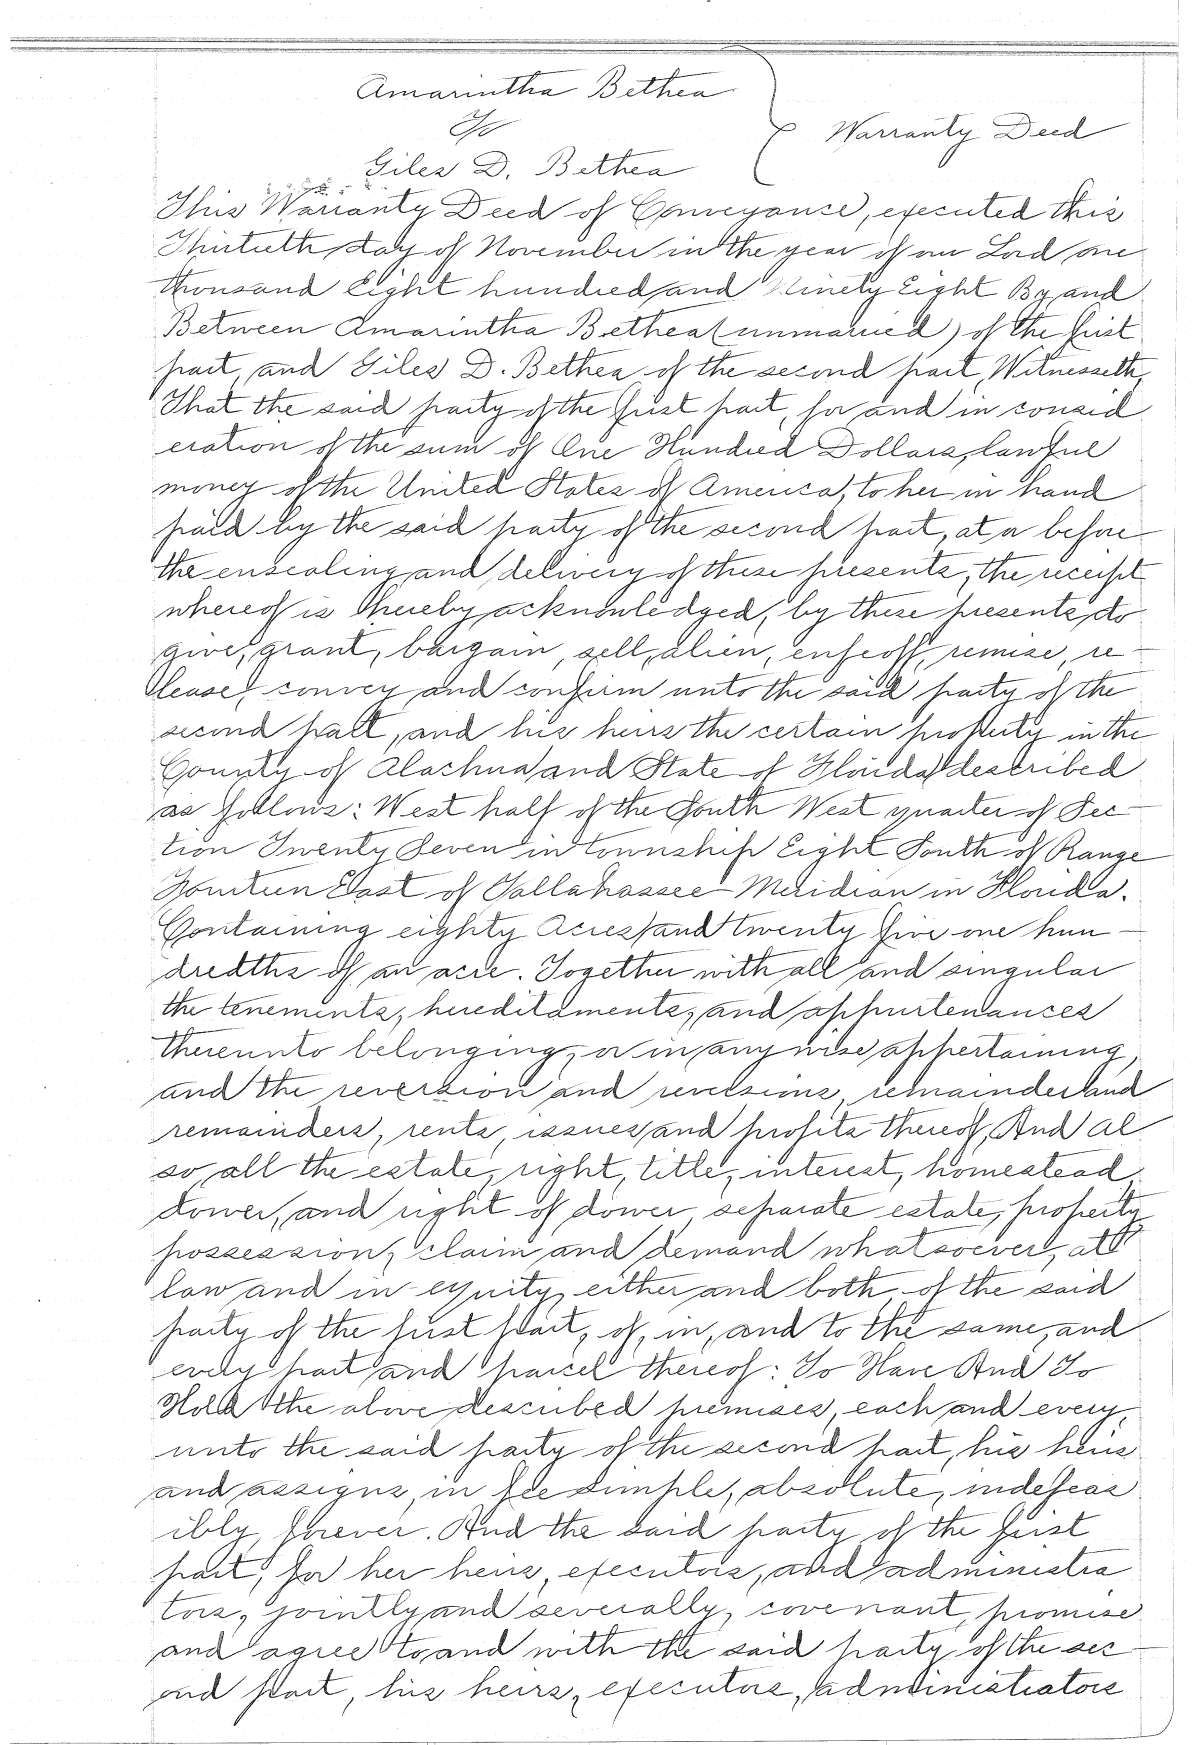 Amarintha Bethea
To
Warranty Deed
Giles D. Bethea
This Warranty Deed of Conveyance, executed this
Thirtieth day of November in the year of our Lord one
thousand Eight hundred and Ninety Eight By and
Between Amarintha Bethea (unmarried) of the first
part, and Giles D. Bethea of the second part, Witnesseth,
That the said party of the first part, for and in consid
eration of the sum of One Hundred Dollars, lawful
money of the United States of America, to her in hand
paid by the said party of the second part, at or before
the ensealing and delivery of these presents, the receipt
whereof is hereby acknowledged, by these presents, do
give, grant, bargain, sell, alien, enfeoff, remise, re-
lease, convey and confirm unto the said party of the
second part, and his heirs the certain property in the
County of Alachua and State of Florida described
as follows: West half of the South West quarter of Sec-
tion Twenty Seven in township Eight South of Range
Fourteen East of Tallahassee Meridian in Florida.
Containing eighty Acres and twenty five one hun-
dredths of an acre. Together with all and singular
the tenements, hereditaments, and appurtenances
thereunto belonging, or in anywise appertaining,
and the reversion and reversions, remainder and
remainders, rents, issues and profits thereof, And al
so, all the estate, right, title, interest, homestead,
dower, and right of dower, separate estate, property
possession, claim and demand whatsoever, at
law and in equity, either and both, of the said
party of the first part, of, in, and to the same, and
every part and parcel thereof: To Have And To
Hold the above described premises, each and every,
unto the said party of the second part, his heirs
and assigns, in fee simple, absolute, indefeas
ibly, forever. And the said party of the first
part, for her heirs, executors, and administra
tors, jointly and severally, covenant, promise
and agree to and with the said party of the sec-
ond part, his heirs, executors, administrators